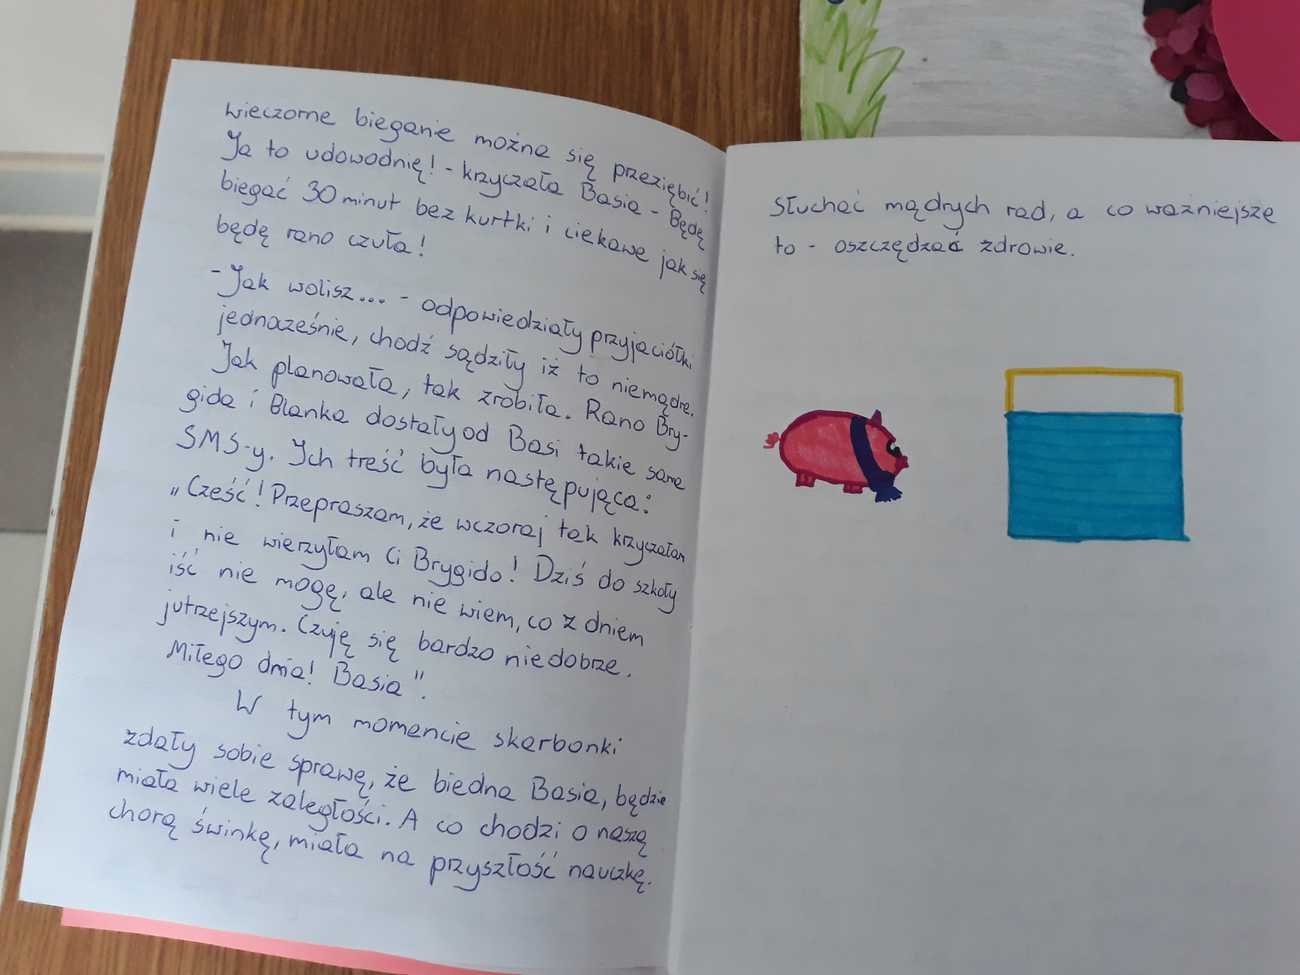 wieczorne bieganie można się przeziębić!
Ja to udowodnię! - krzyczała Basia - Będę
biegać 30 minut bez kurtki i ciekawe jak się
będę rano czuła!
- Jak wolisz... - odpowiedziały przyjaciółki
jednocześnie, chodź sądziły iż to niemądre.
Jak planowała, tak zrobiła. Rano Bry-
gida i Blanka dostały od Basi takie same
SMS-y. Ich treść była następująca:
„Cześć! Przepraszam, że wczoraj tak krzyczałam
i nie wierzyłam Ci Brygido! Dziś do szkoły
iść nie mogę, ale nie wiem, co z dniem
jutrzejszym. Czuję się bardzo niedobrze.
Miłego dnia! Basia".
W tym momencie skarbonki
zdały sobie sprawę, że biedna Basia, będzie
miała wiele zaległości. A co chodzi o naszą
chorą świnkę, miała na przyszłość nauczkę.
słuchać mądrych rad, a co ważniejsze
to - oszczędzać zdrowie.